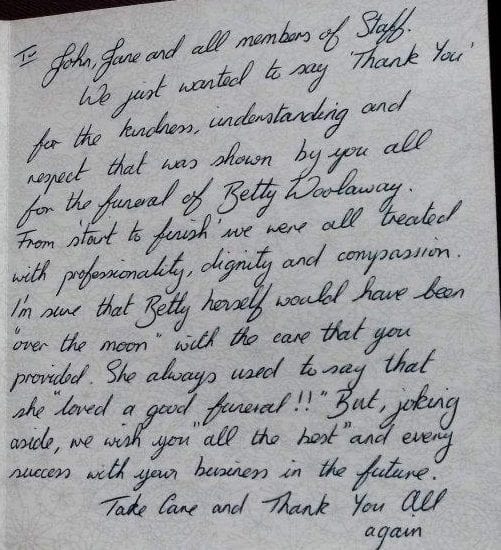 To John, Jane and all members of Staff.
We just wanted to say 'Thank You'
for the kindness, understanding and
respect that was shown by you all
for the funeral of Betty Woolaway.
From 'start to finish' we were all treated
with professionality, dignity and compassion.
I'm sure that Betty herself would have been
"over the moon" with the care that you
provided. She always used to say that
she "loved a good funeral!!" But, joking
aside, we wish you "all the best" and every
success with your business in the future.
Take Care and Thank You All
again